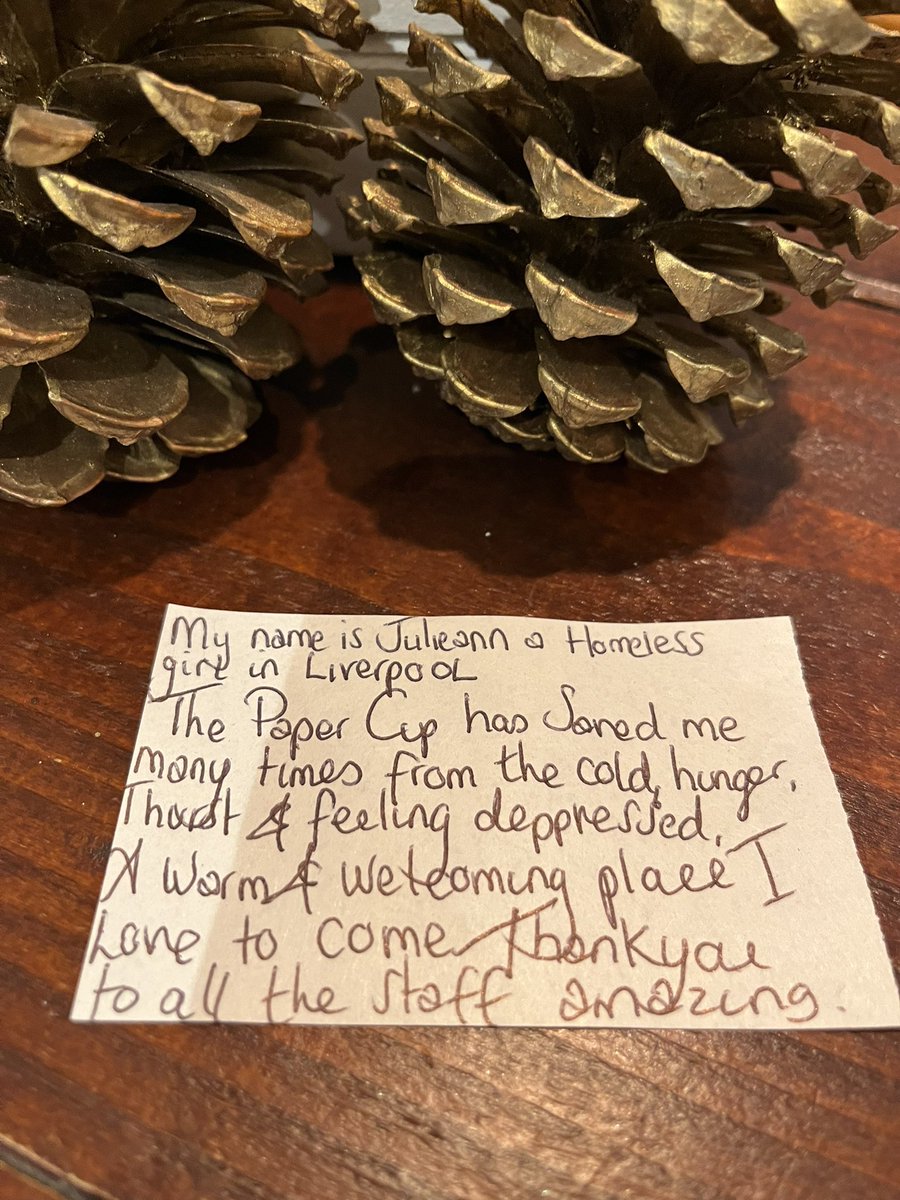 My name is Julieann a Homeless
girl in Liverpool
The Paper Cup has Saved me
many times from the cold, hunger,
Thurst & feeling deppressed,
A warm & welcoming place I
Love to come Thankyou
to all the staff amazing.